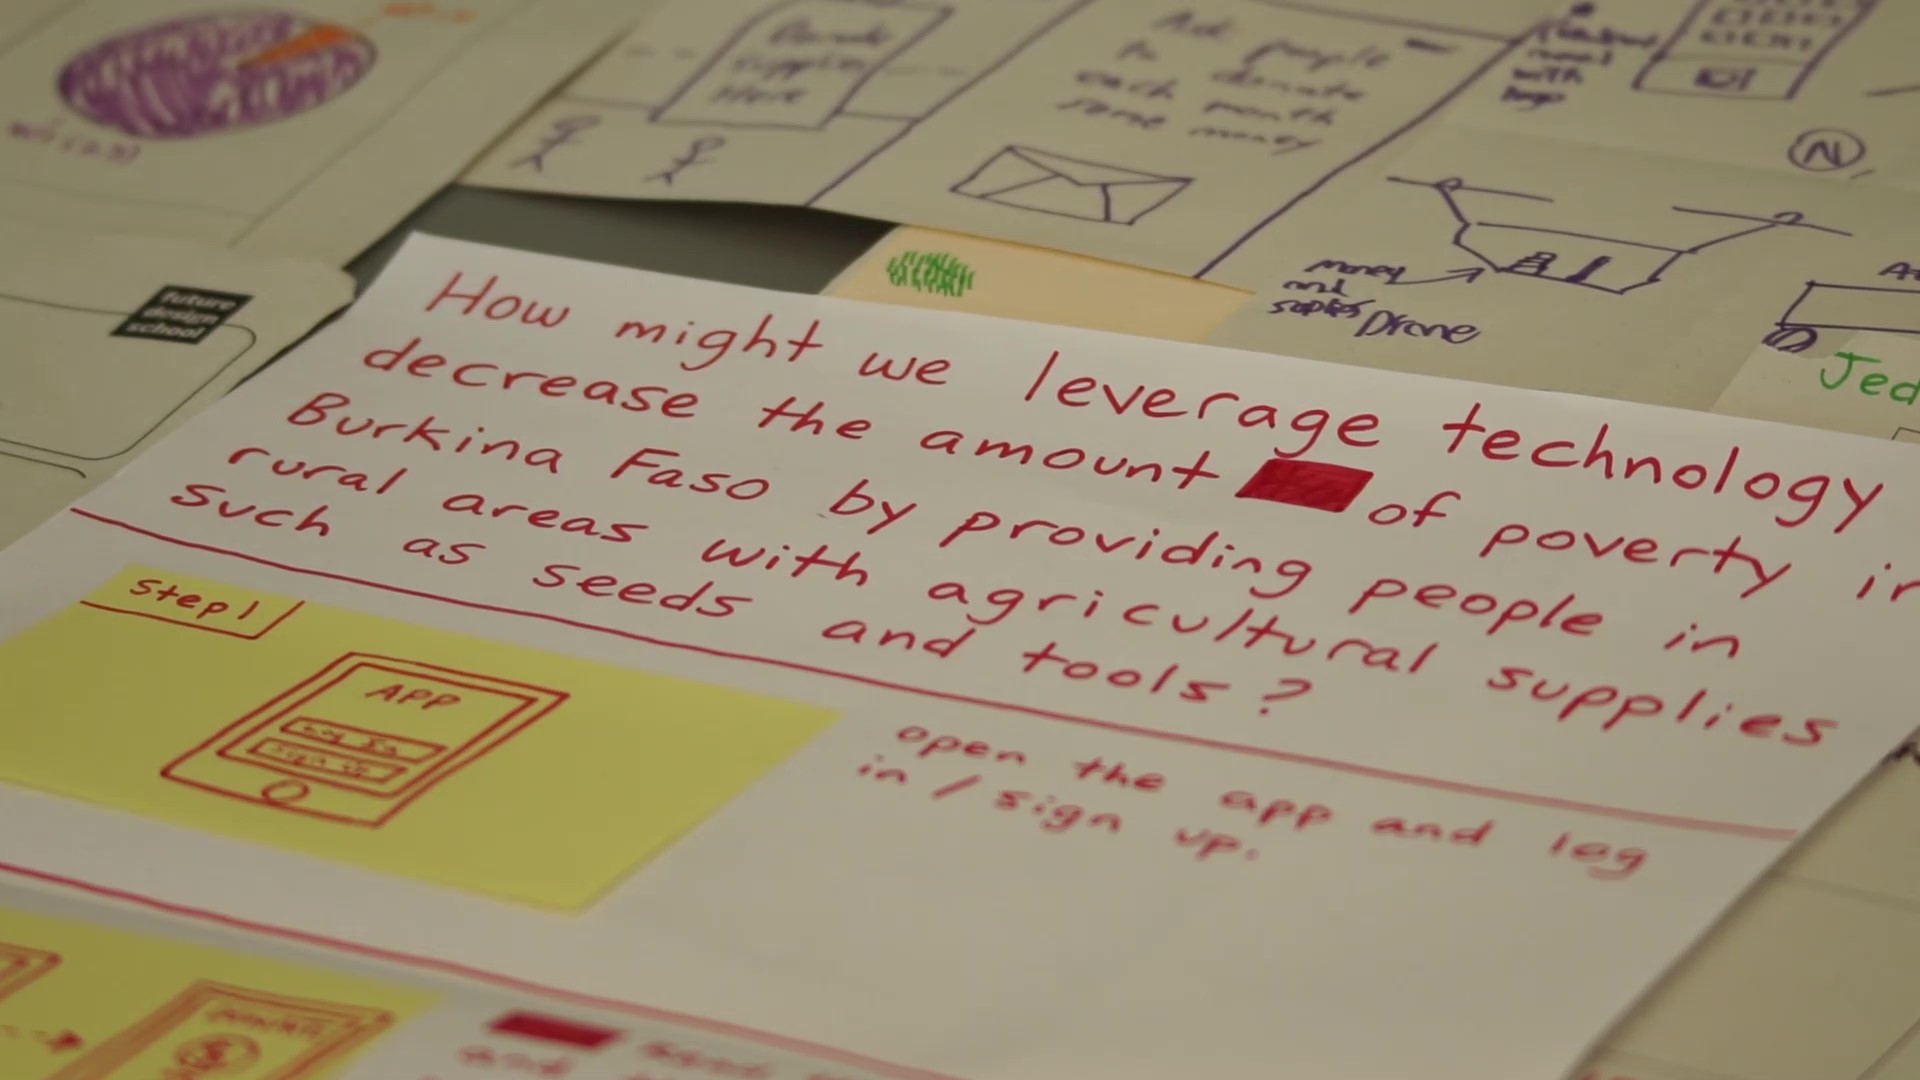 Donate
supplies
Here
Ask people
to donate
each month
some money
with
N
money
and
supplies
Drone
Jed
future
design
school
How might we leverage technology
decrease the amount of poverty in
Burkina Faso by providing people in
rural areas with agricultural supplies
such as seeds and tools?
Step 1
APP
Log In
Sign Up
open the app and log
in / sign up.